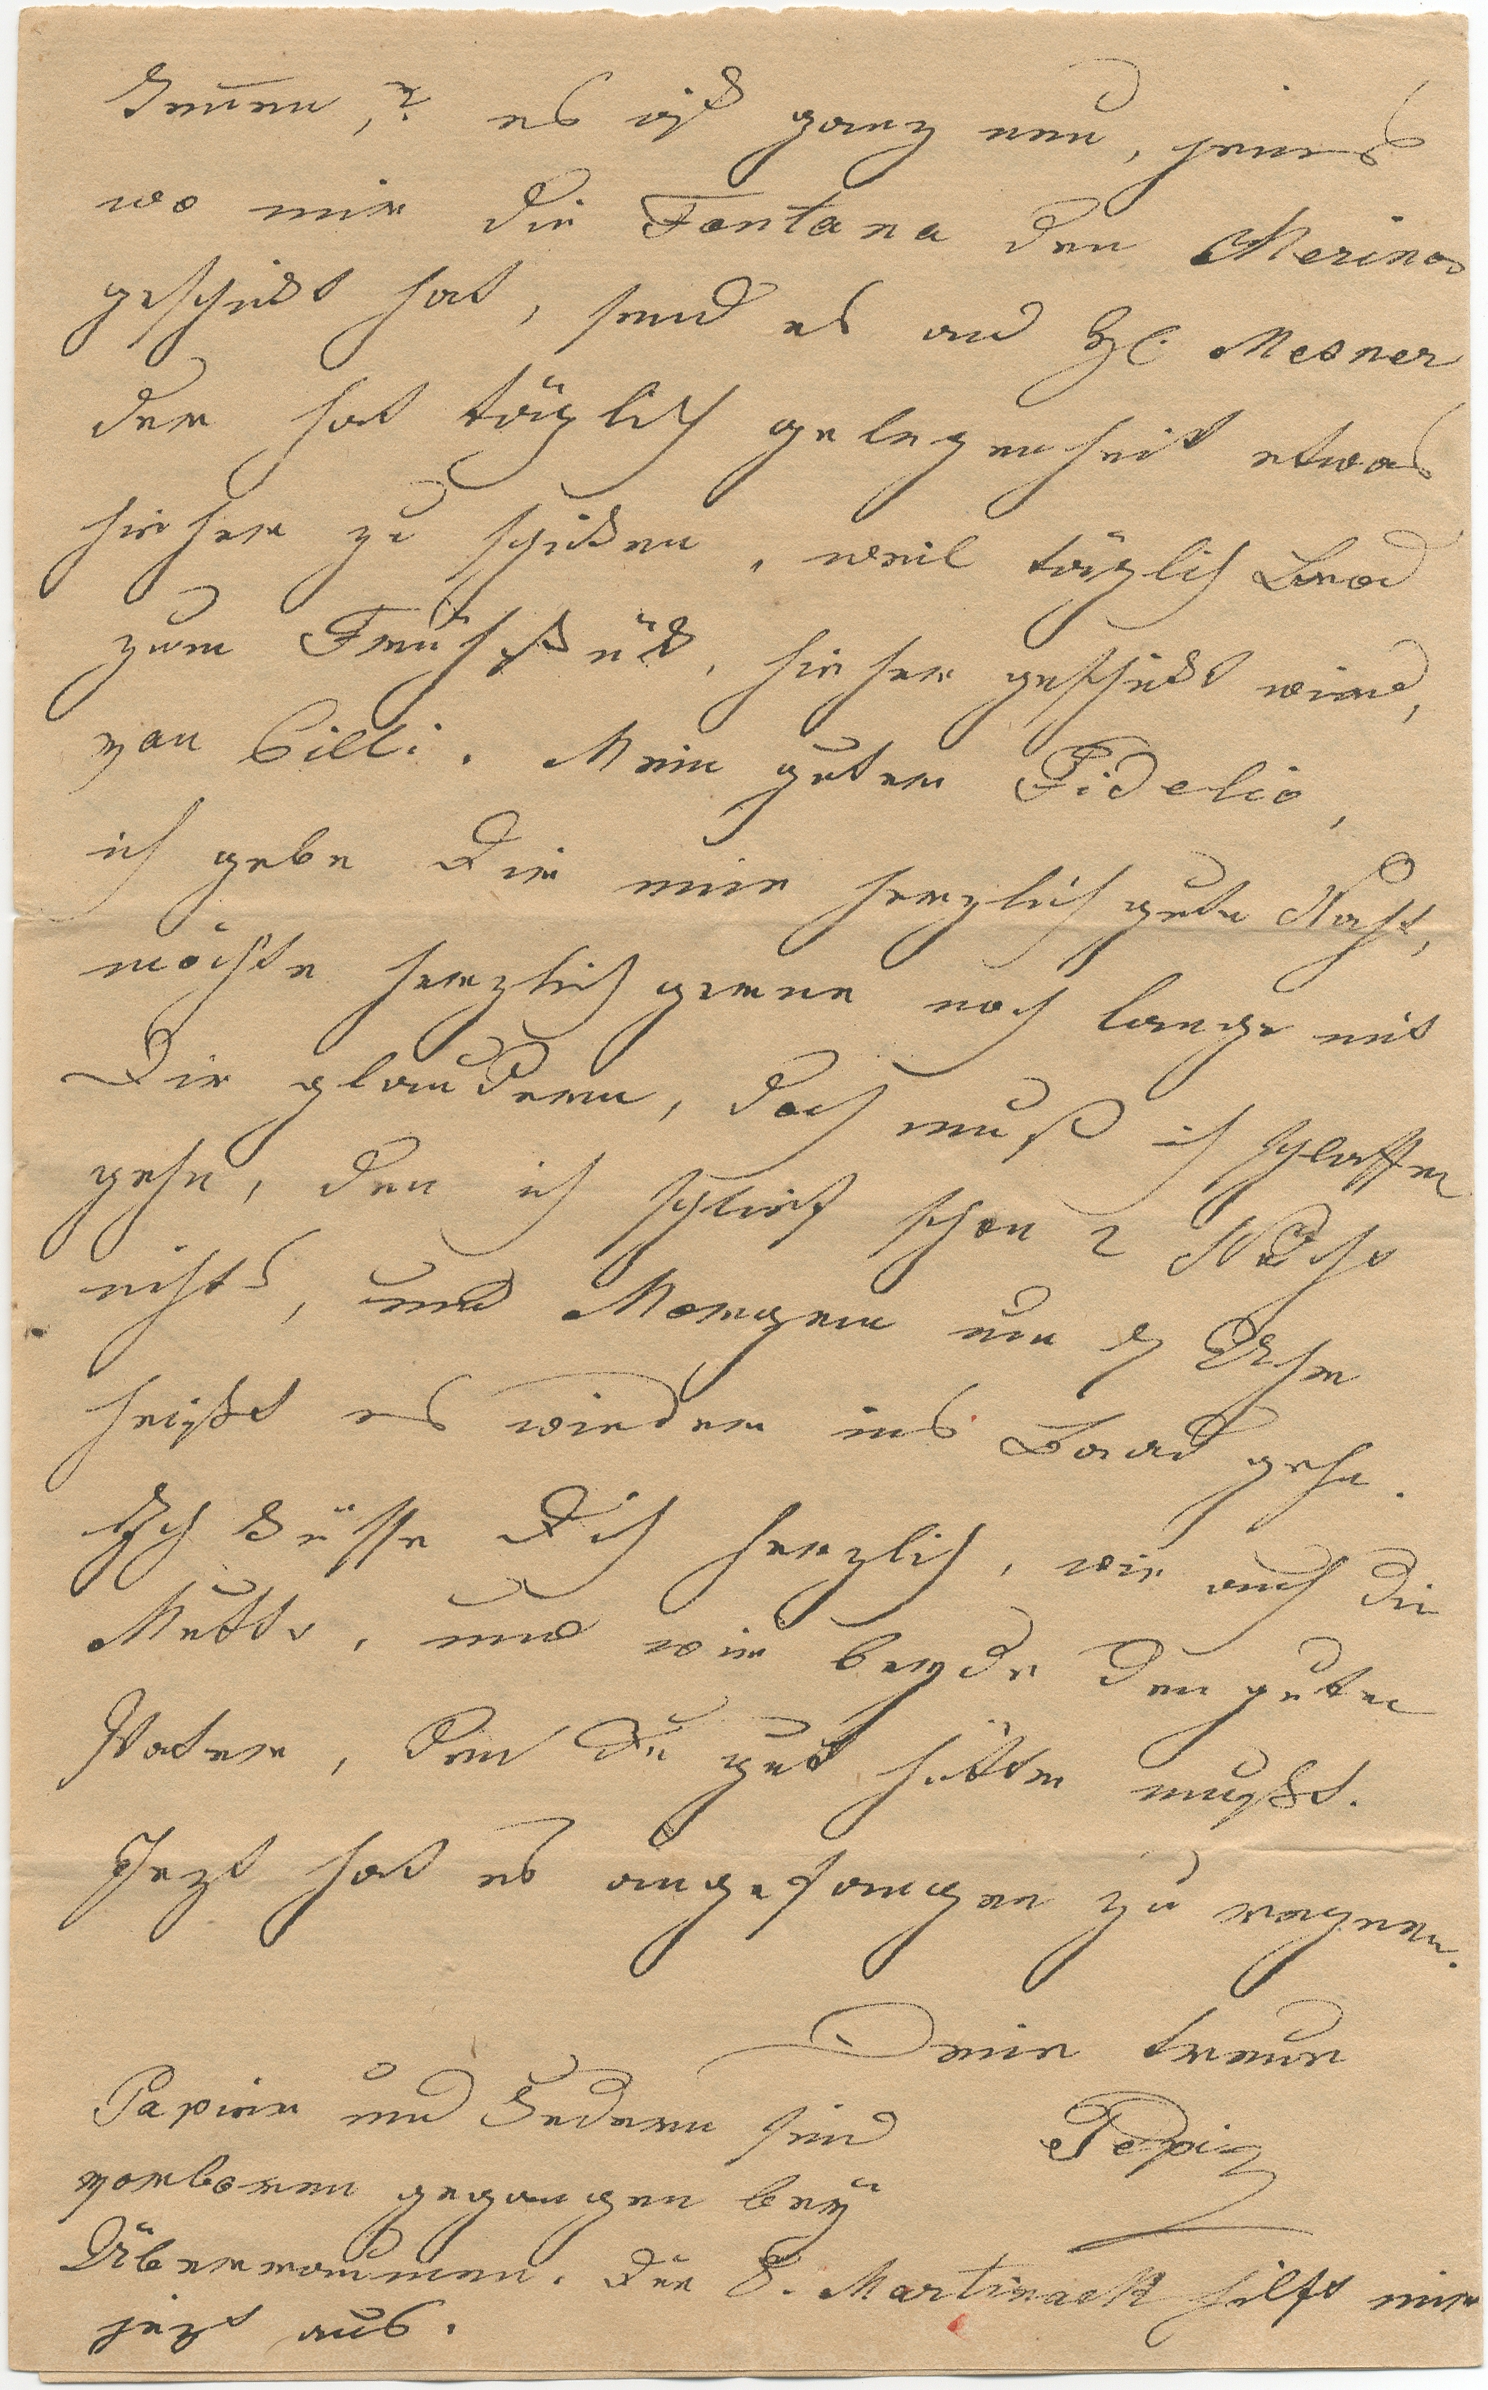 kennen,? es ist ganz neu, jenes
wo mir die Fontana den Merinos
geschickt hat, send es an H. Mesner
der hat täglich gelegenheit etwas
hieher zu schicken, weil täglich Brod
zum Frühstük, hieher geschickt wird,
von Cilli. Mein guter Fidelio,
ich gebe Dir eine herzlich gute Nacht,
möchte herzlich gerne noch lange mit
Dir plaudern, doch muß ich schlaffen
gehn, den ich schlief schon 2 Nächt
nichts, und Morgen um Uhr
heißt es wieder ins Baad gehn.
Ich küsse Dich herzlich, wie auch die
Mutter, und wir beyde den guten
Vater, den Du gut hütten mußt.
Jezt hat es angefangen zu regnen.
Deine treue
Pepi
Papier und Federn sind
verloren gegangen beÿ
Überräumen. Die Martinack hilft mir
jezt aus.